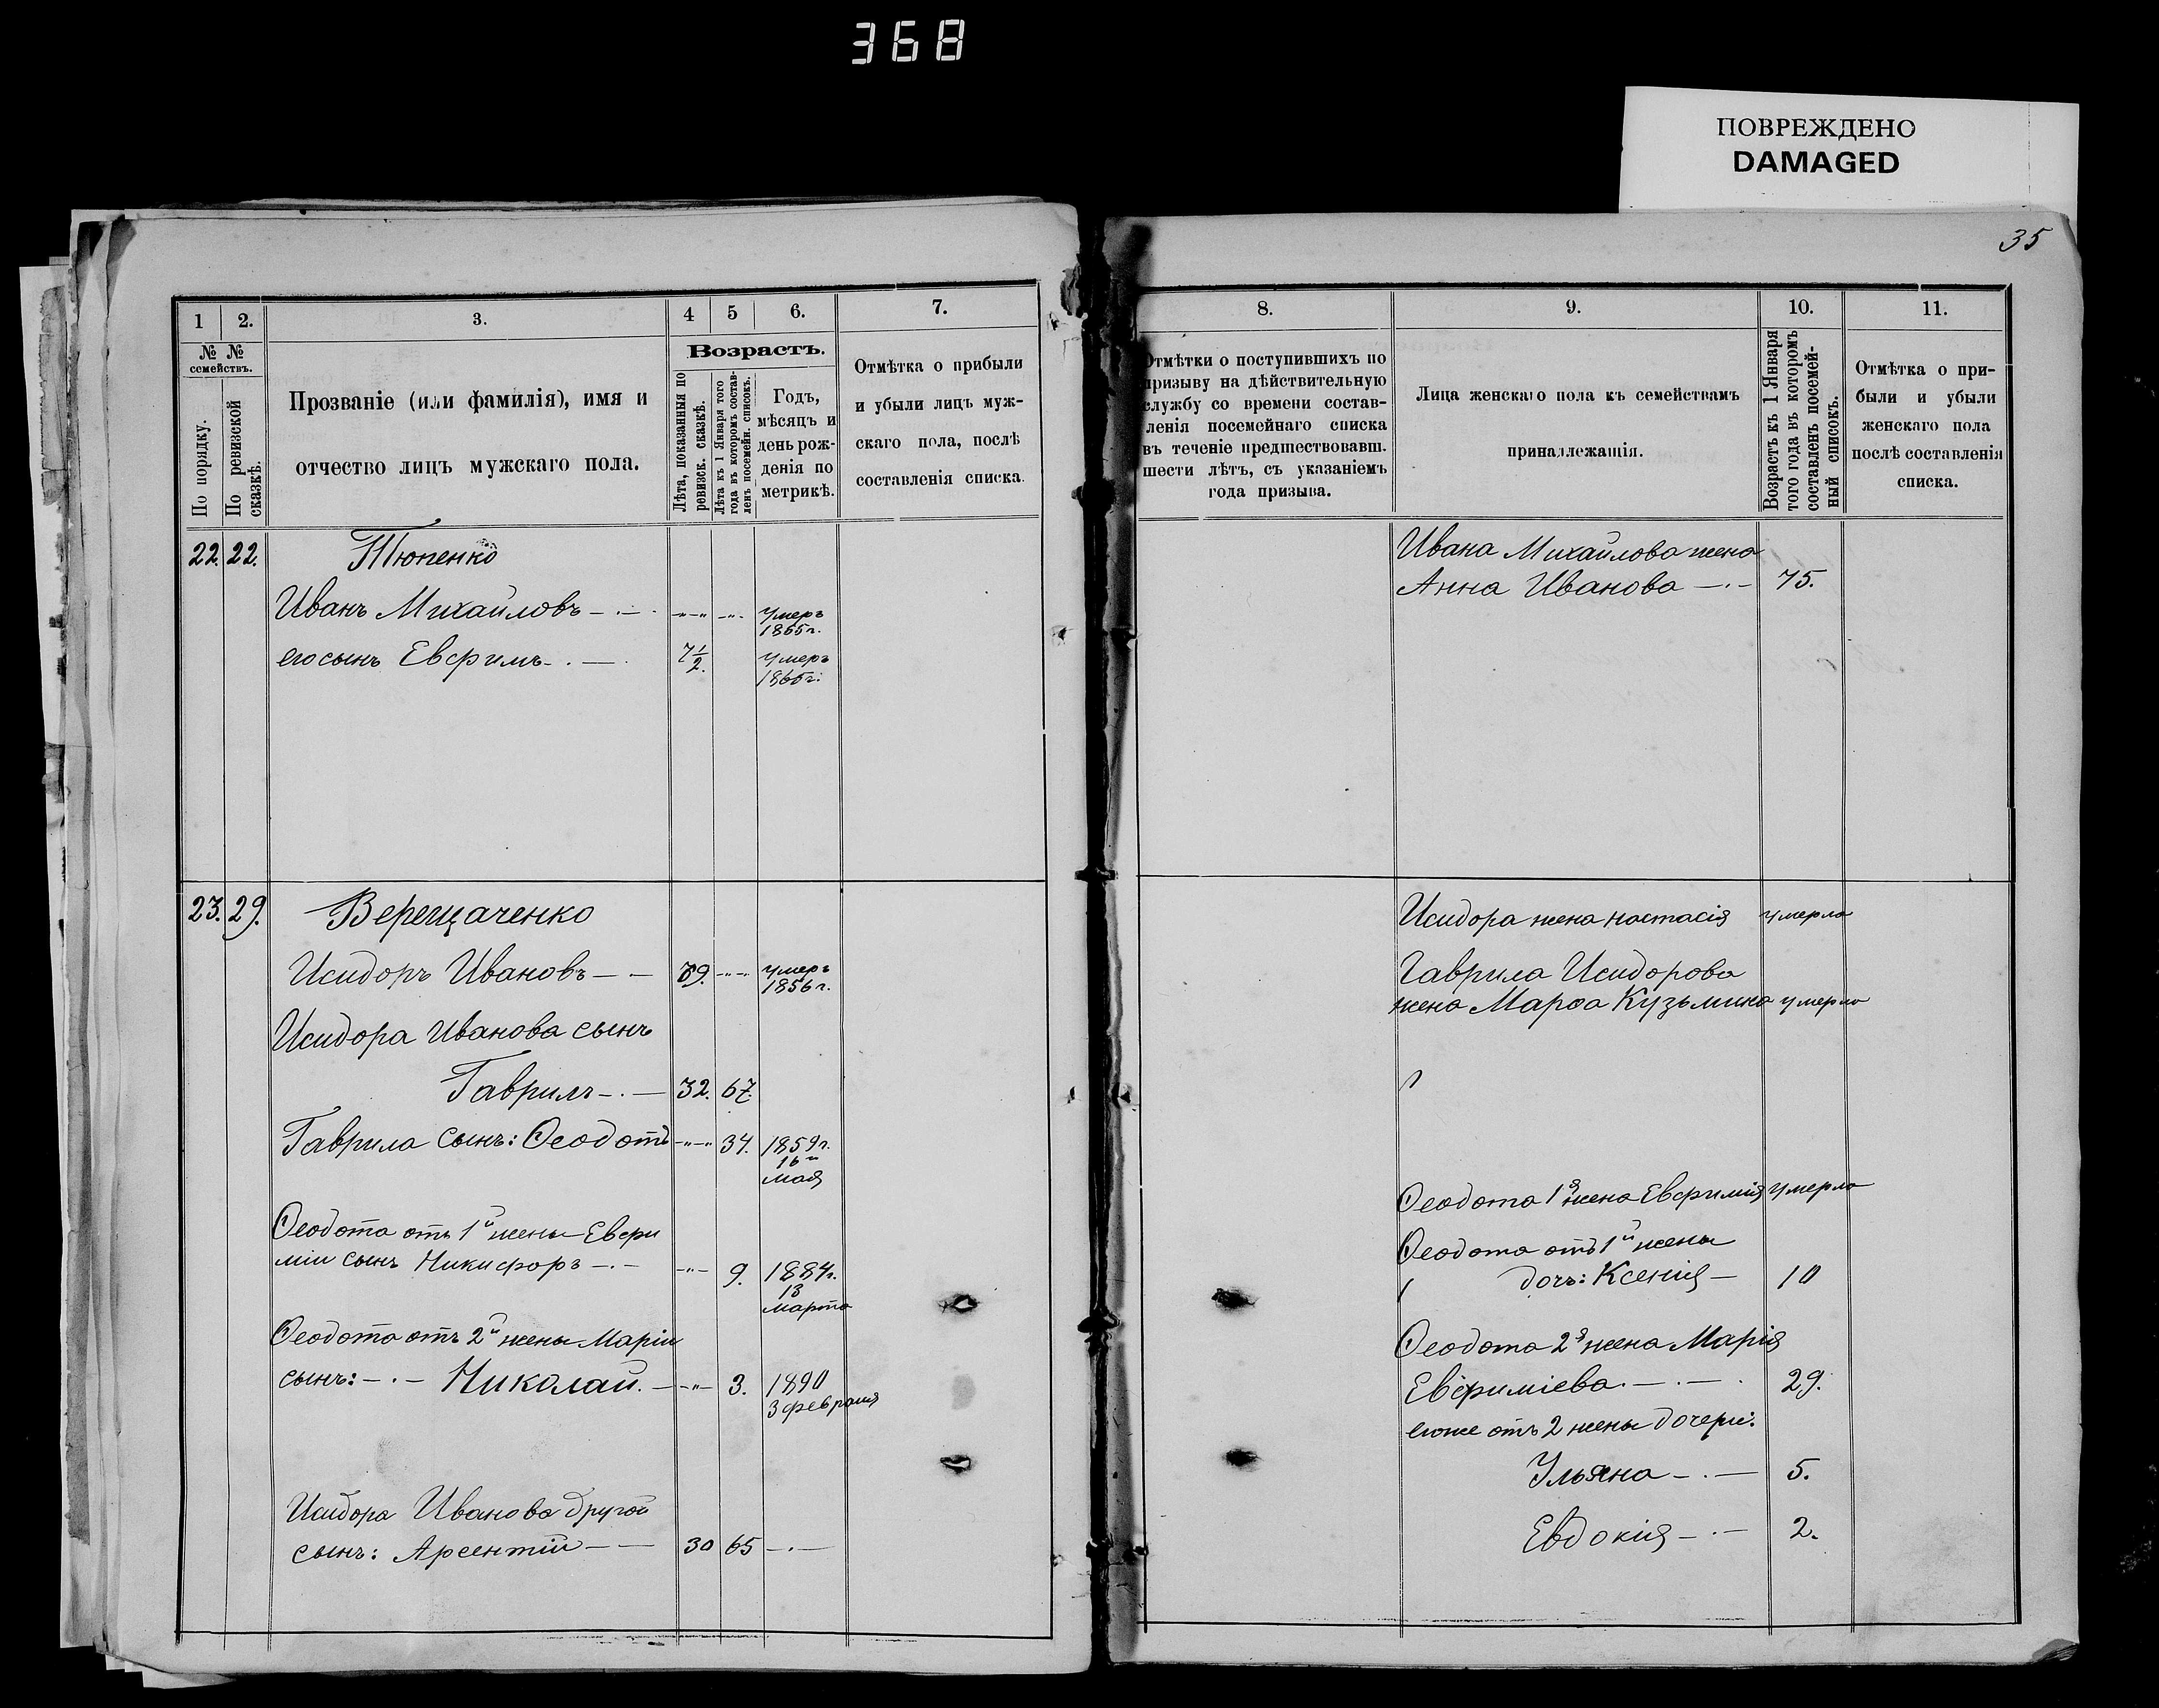 368
ПОВРЕЖДЕНО
DAMAGED
35
1
2.
3.
4
5
6.
7.
№ №
семействъ.
По порядку.
По ревизской
сказкѣ.
Прозваніе (или фамилія), имя и
отчество лицъ мужскаго пола.
Возрастъ.
Лѣта, показанныя по
ревизск. сказкѣ.
Лѣта къ 1 Января того
года въ которомъ состав-
ленъ посемейн. списокъ.
Годъ,
мѣсяцъ и
день рож-
денія по
метрикѣ.
Отмѣтка о прибыли
и убыли лицъ муж-
скаго пола, послѣ
составленія списка.
22. 22. Тюпенко
Иванъ Михайловъ умеръ
1865г.
его сынъ Евфимъ 7 1/2. умеръ
1865г.
23. 29. Верещаченко
Исидоръ Ивановъ 79. умеръ
1856г.
Исидора Иванова сынъ
Гаврилъ 32. 67.
Гаврила сынъ: Ѳеодотъ 34. 1859г.
16
мая
Ѳеодота отъ 1й жены Евфи
міи сынъ Никифоръ 9. 1884г.
13
марта
Ѳеодота отъ 2й жены Маріи
сынъ: Николай. 3. 1890
3 февраля
Исидора Иванова другой
сынъ: Арсентій 30 65
8.
9.
10.
11.
Отмѣтки о поступившихъ по
призыву на дѣйствительную
службу со времени состав-
ленія посемейнаго списка
въ теченіе предшествовавш.
шести лѣтъ, съ указаніемъ
года призыва.
Лица женскаго пола къ семействамъ
принадлежащія.
Возрастъ къ 1 Января
того года въ которомъ
составленъ посемей-
ный списокъ.
Отмѣтка о при-
были и убыли
женскаго пола
послѣ составленія
списка.
Ивана Михайлова жена
Анна Иванова 75.
Исидора жена настасія умерла
Гаврила Исидорова
жена Марѳа Кузьмина умерла
Ѳеодота 1я жена Евфимія умерла
Ѳеодота отъ 1й жены
дочь: Ксенія 10
Ѳеодота 2я жена Марія
Евфиміева 29.
егоже отъ 2 жены дочери:
Ульяна 5.
Евдокія 2.